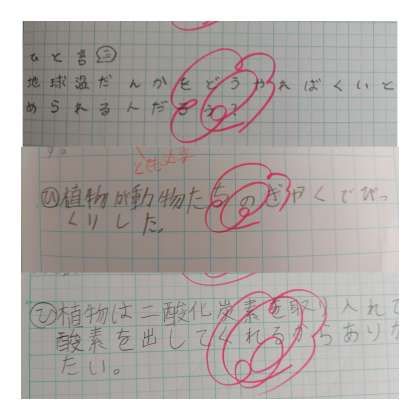 ひと言㊁
地球温だんかをどうやればくいと
められるんだろう?
ひ植物が動物たちのぎせくでびっ
くりした。
ひ植物は二酸化炭素を取り入れて
酸素を出してくれるからありが
たい。